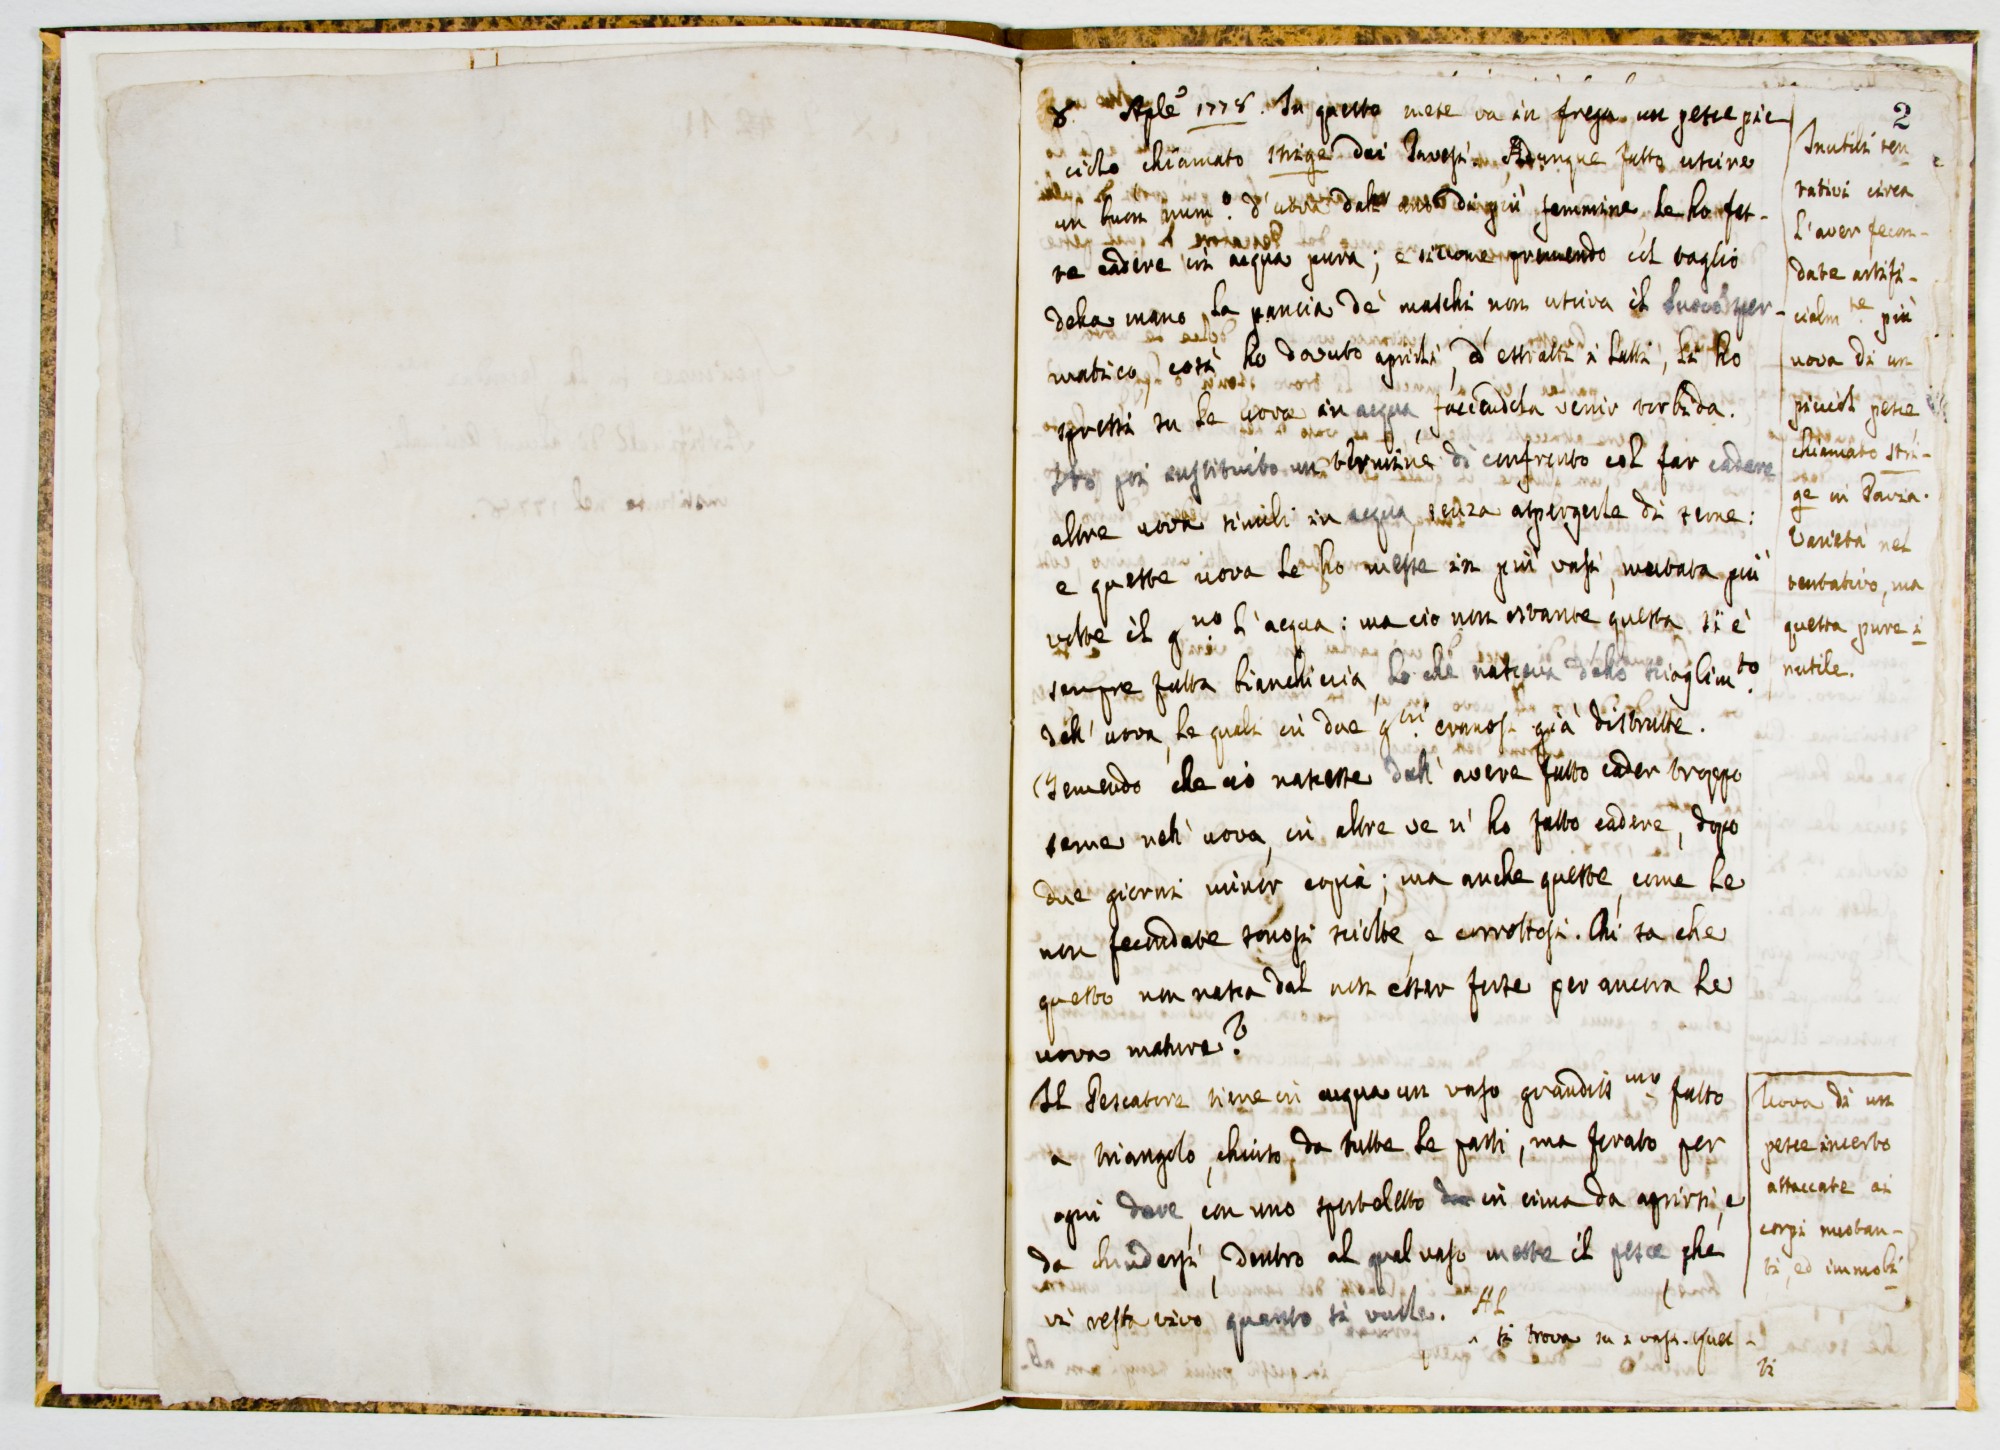 2
8. Aple 1778. In questo mese va in frega un pesce pic
ciolo chiamato strige dai Pavesi. Adunque fatto uscire
un buon num.o d'uova dall'ano di più femmine, le ho fat-
te cadere in acqua pura; e siccome premendo col taglio
della mano la pancia de' maschi non usciva il suco sper-
matico, così ho dovuto aprirli, ed estratti i latti, li ho
spressi su le uova in acqua, facendola venir torbida.
Ho poi instituito un termine di confronto col far cadere
altre uova simili in acqua, senza aspergerle di seme:
e queste uova le ho messe in più vasi, mutata più
volte il gno l'acqua: ma ciò non ostante questa si è
sempre fatta bianchiccia, lo che nasceva dallo scioglimto.
dell'uova, le quali in due gni. eranosi già distrutte.
Temendo che ciò nascesse dall'avere fatto cader troppo
seme nell'uova, in altre ve n'ho fatto cadere, dopo
due giorni minor copia; ma anche queste, come le
non fecondate sonosi sciolte, e corrottesi. Chi sa che
questo non nasca dal non esser forse per ancora le
uova mature?
Il Pescatore tiene in acqua un vaso grandiss.mo fatto
a triangolo, chiuso da tutte le parti, ma forato per
ogni dove, con uno sportelletto in cima da aprirsi, e
da chiudersi, dentro al qual vaso mette il pesce, che
vi resta vivo quanto si vuole. Al
si trova su i vasi. Quel-
li
Inutili ten
tativi circa
l'aver fecon-
date artifi-
cialm.te più
uova di un
piccol pesce
chiamato stri-
ge in Pavia.
Varietà nel
tentativo, ma
questa pure i
nutile.
Uova di un
pesce incerto
attaccate ai
corpi nuotan-
ti, ed immobi